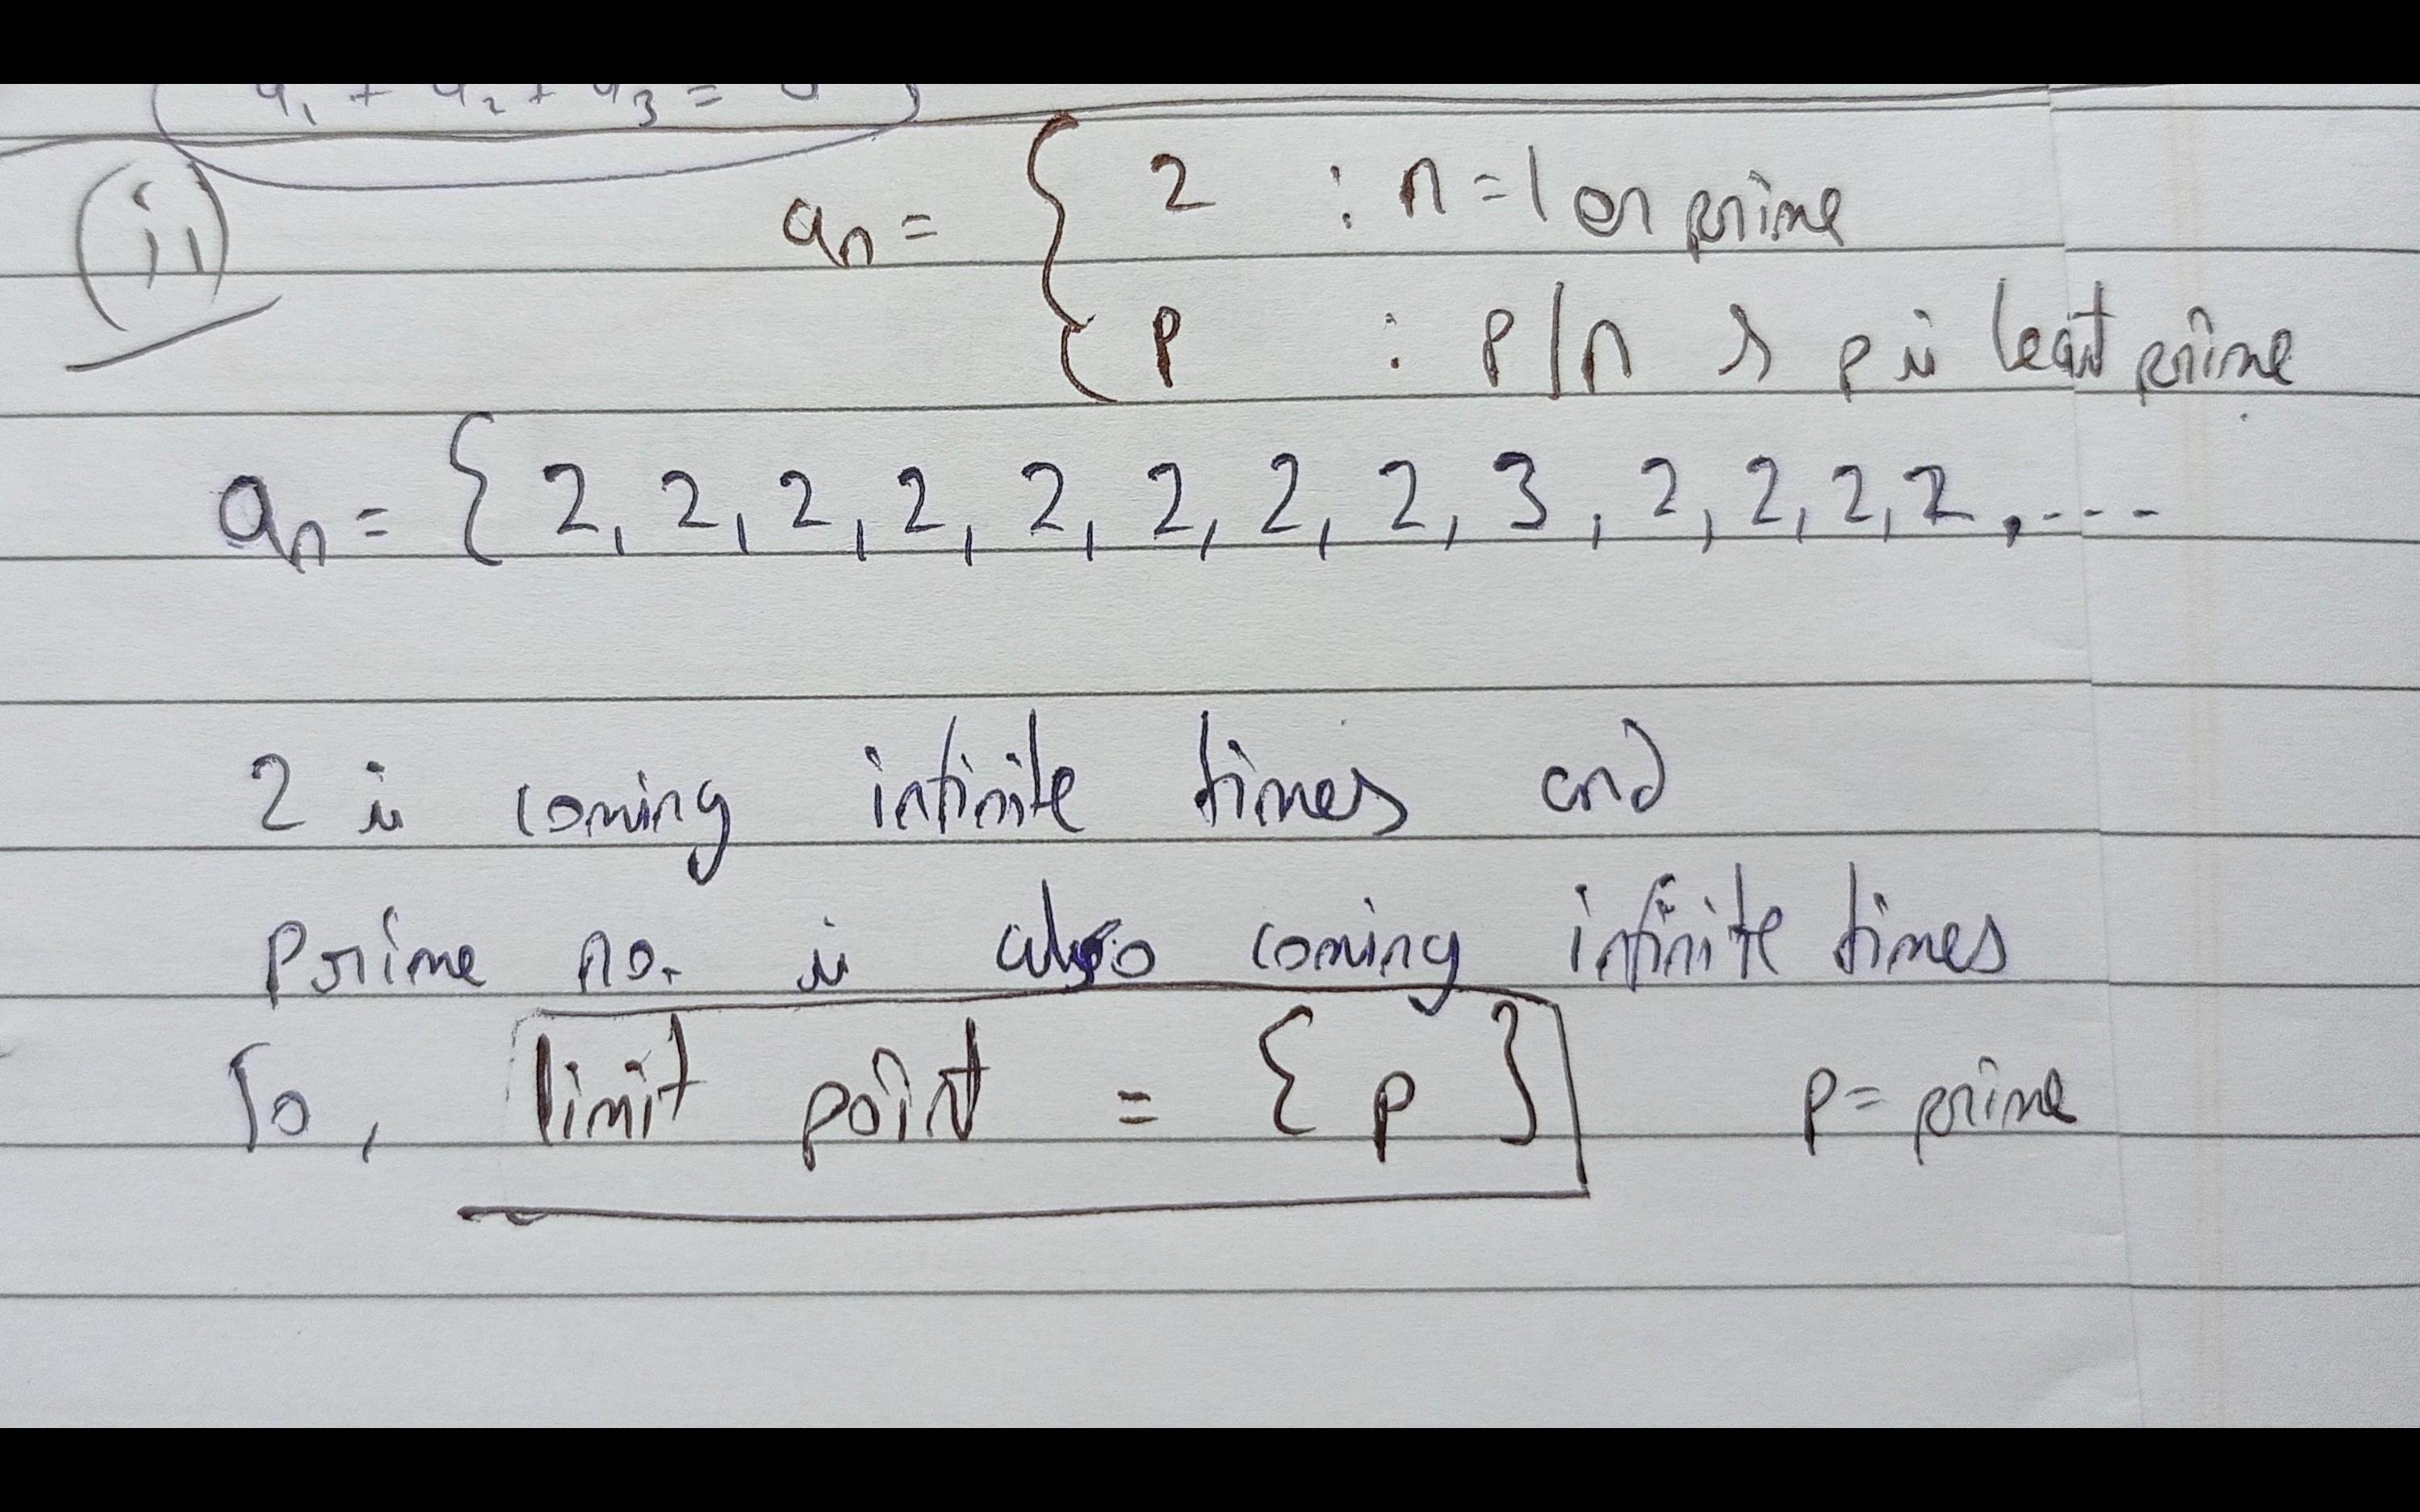 a₁ + a₂ + a₃ = 0
(ii)
aₙ = { 2 : n = 1 or prime
p : p/n & p is least prime
aₙ = { 2, 2, 2, 2, 2, 2, 2, 2, 3, 2, 2, 2, 2, ---
2 is coming infinite times and
Prime no. is also coming infinite times
So, limit point = { p } p = prime